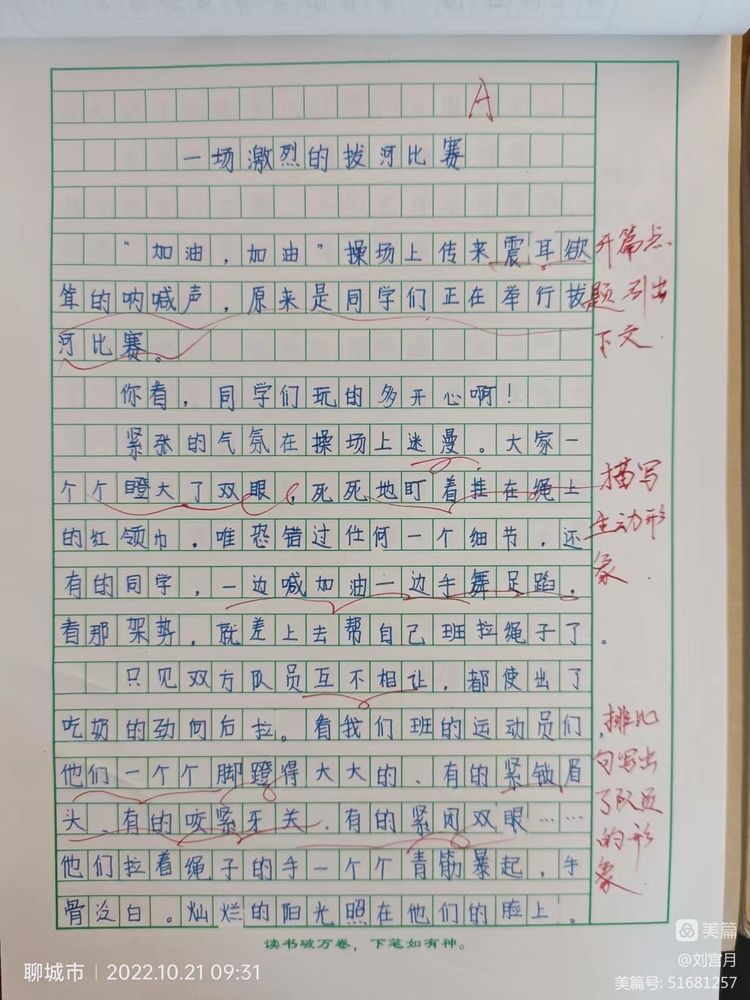 A
一场激烈的拔河比赛
“加油，加油”操场上传来震耳欲
耸的呐喊声，原来是同学们正在举行拔
河比赛。
你看，同学们玩的多开心啊！
紧张的气氛在操场上迷漫。大家一
个个瞪大了双眼，死死地盯着挂在绳上
的红领巾，唯恐错过任何一个细节，还
有的同学，一边喊加油一边手舞足蹈，
看那架势，就差上去帮自己班拉绳子了。
只见双方队员互不相让，都使出了
吃奶的劲向后拉。看我们班的运动员们，
他们一个个脚蹬得大大的、有的紧锁眉
头、有的咬紧牙关、有的紧闭双眼……
他们拉着绳子的手一个个青筋暴起，手
骨泛白。灿烂的阳光照在他们的脸上。
开篇点
题引出
下文.
描写
生动形
象.
排比
句写出
了队员
的形
象.
读书破万卷，下笔如有神。
聊城市 | 2022.10.21 09:31
美篇
@刘宫月
美篇号: 51681257